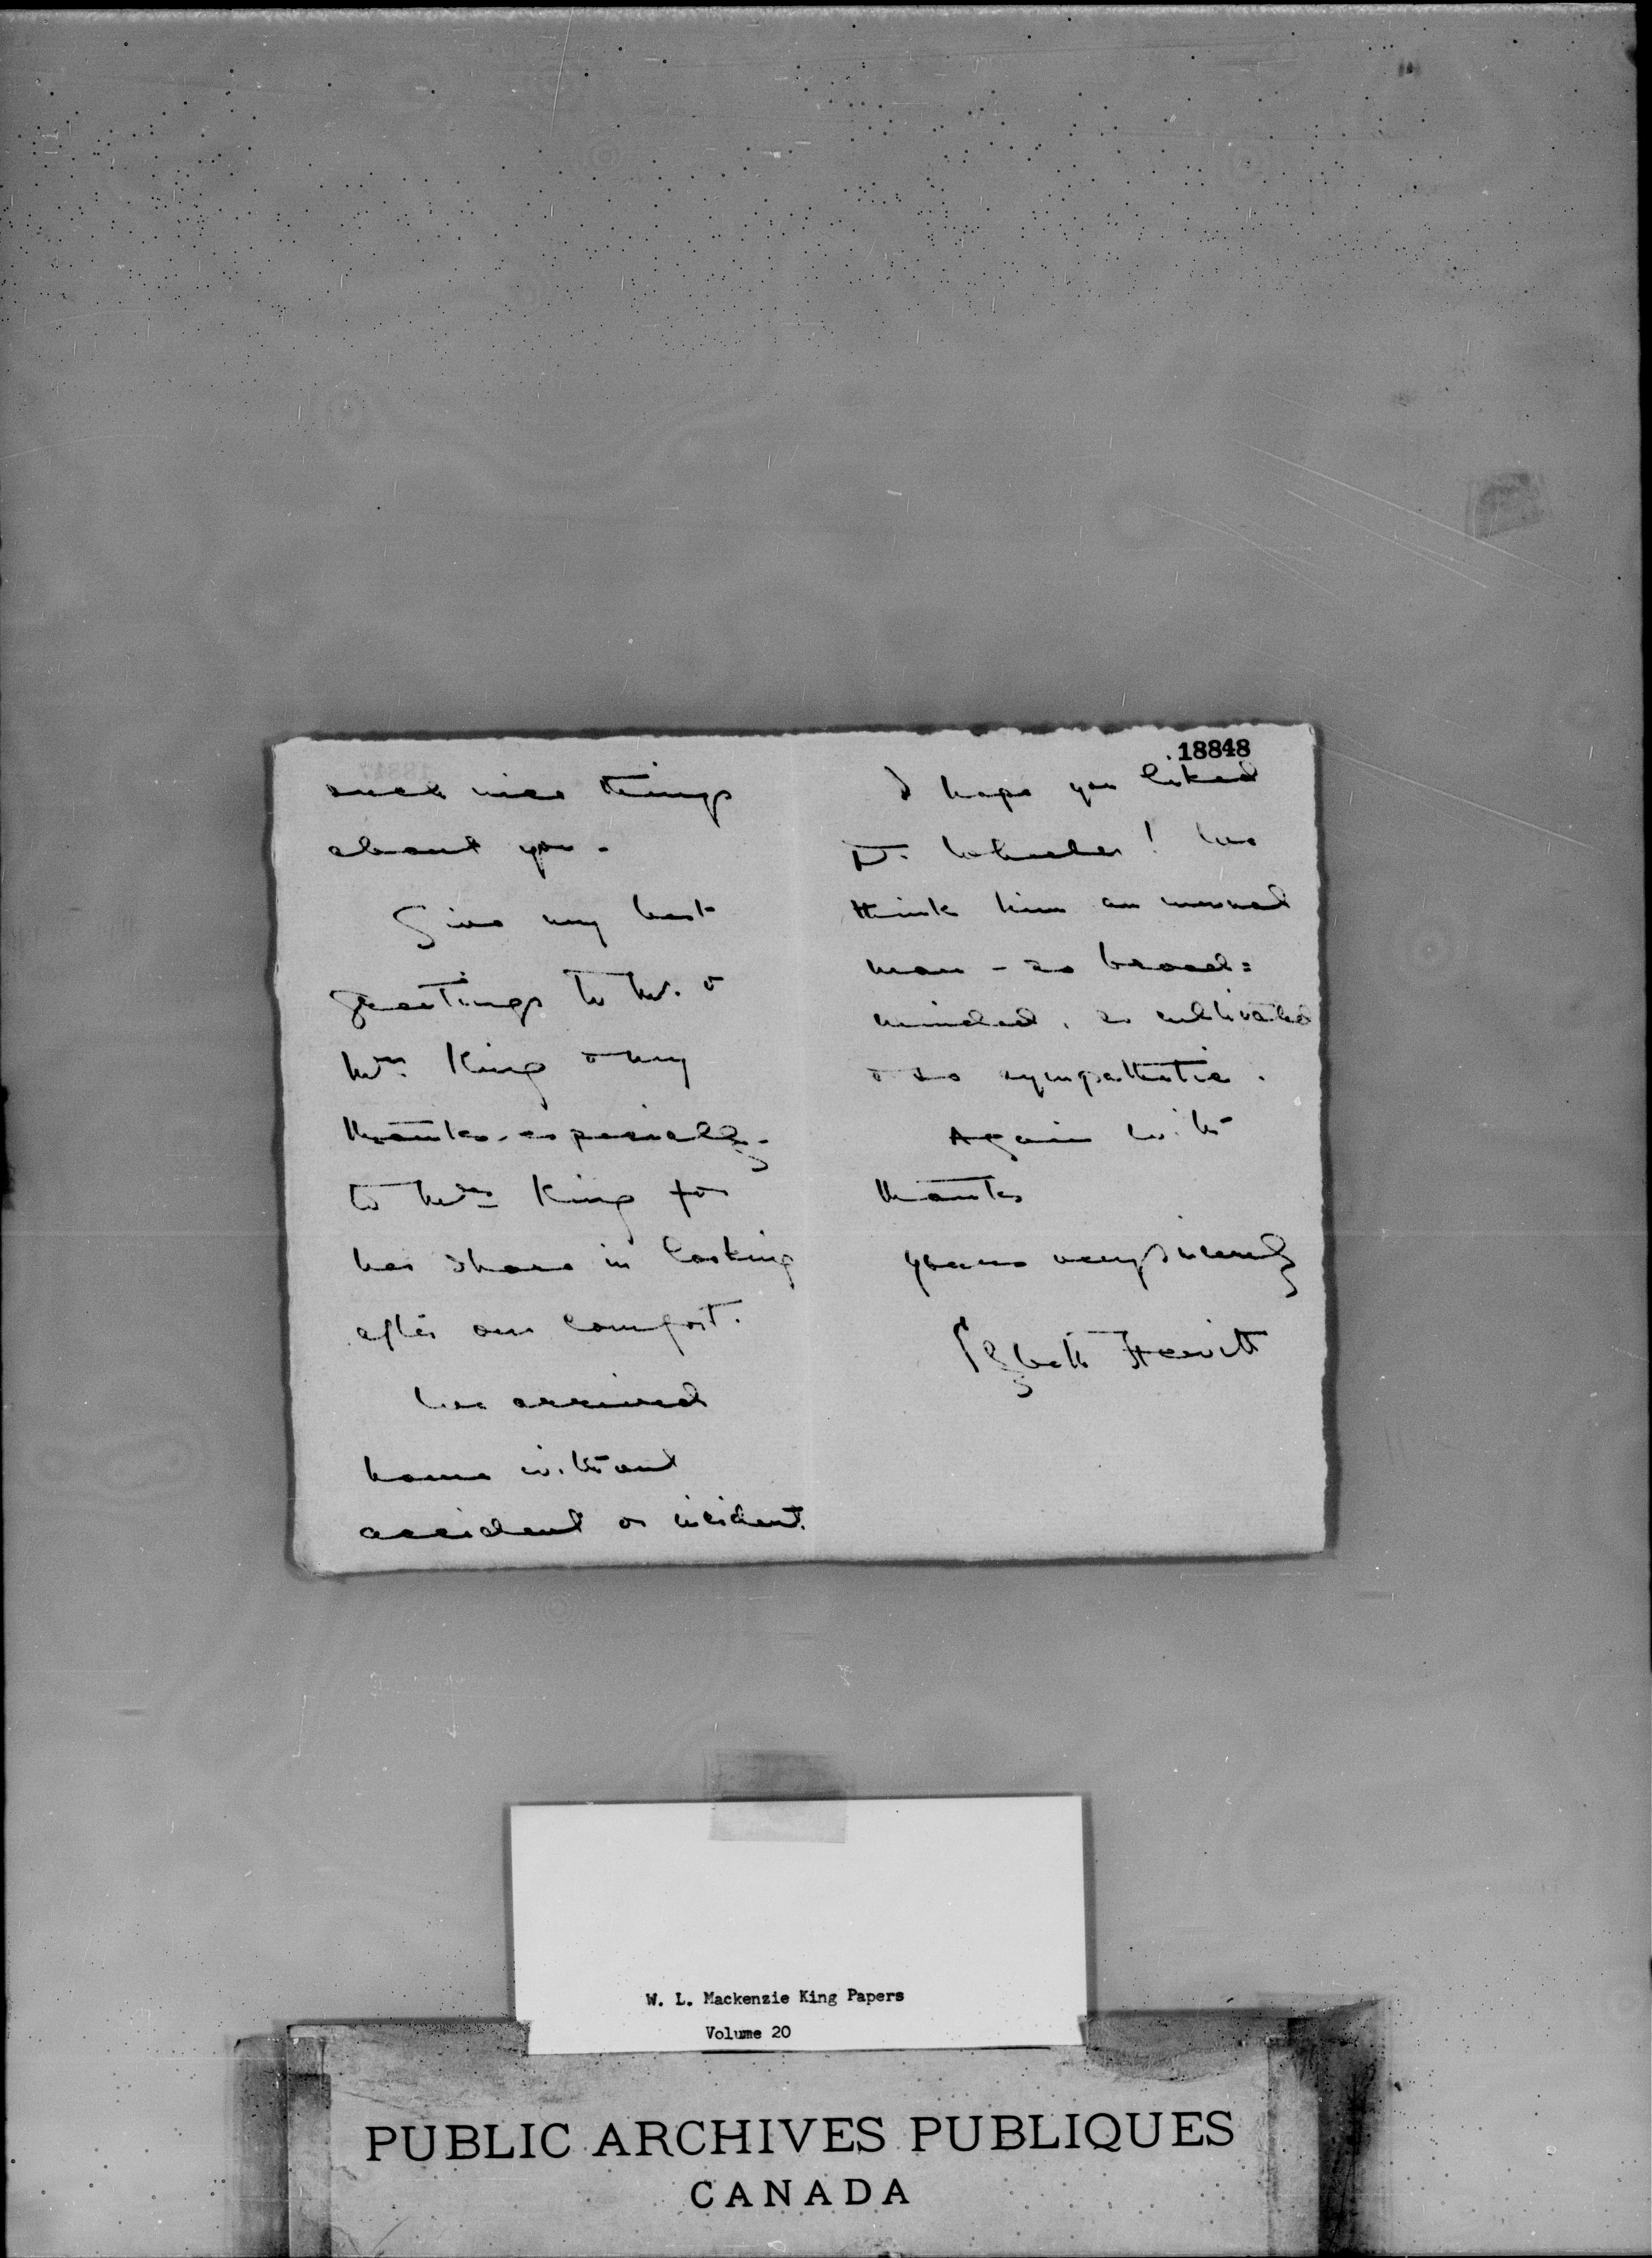 such nice things
about you.
Give my best
greetings to Mr. &
Mrs. King & my
thanks - especially -
to Mrs. King for
her share in looking
after our comfort.
We arrived
home without
accident or incident.
18848
I hope you liked
Dr. Wheeler! We
think him an unusual
man - so broad=
minded, so cultivated
& so sympathetic.
Again with
thanks
yours very sincerely
Hewitt
W. L. Mackenzie King Papers
Volume 20
PUBLIC ARCHIVES PUBLIQUES
CANADA